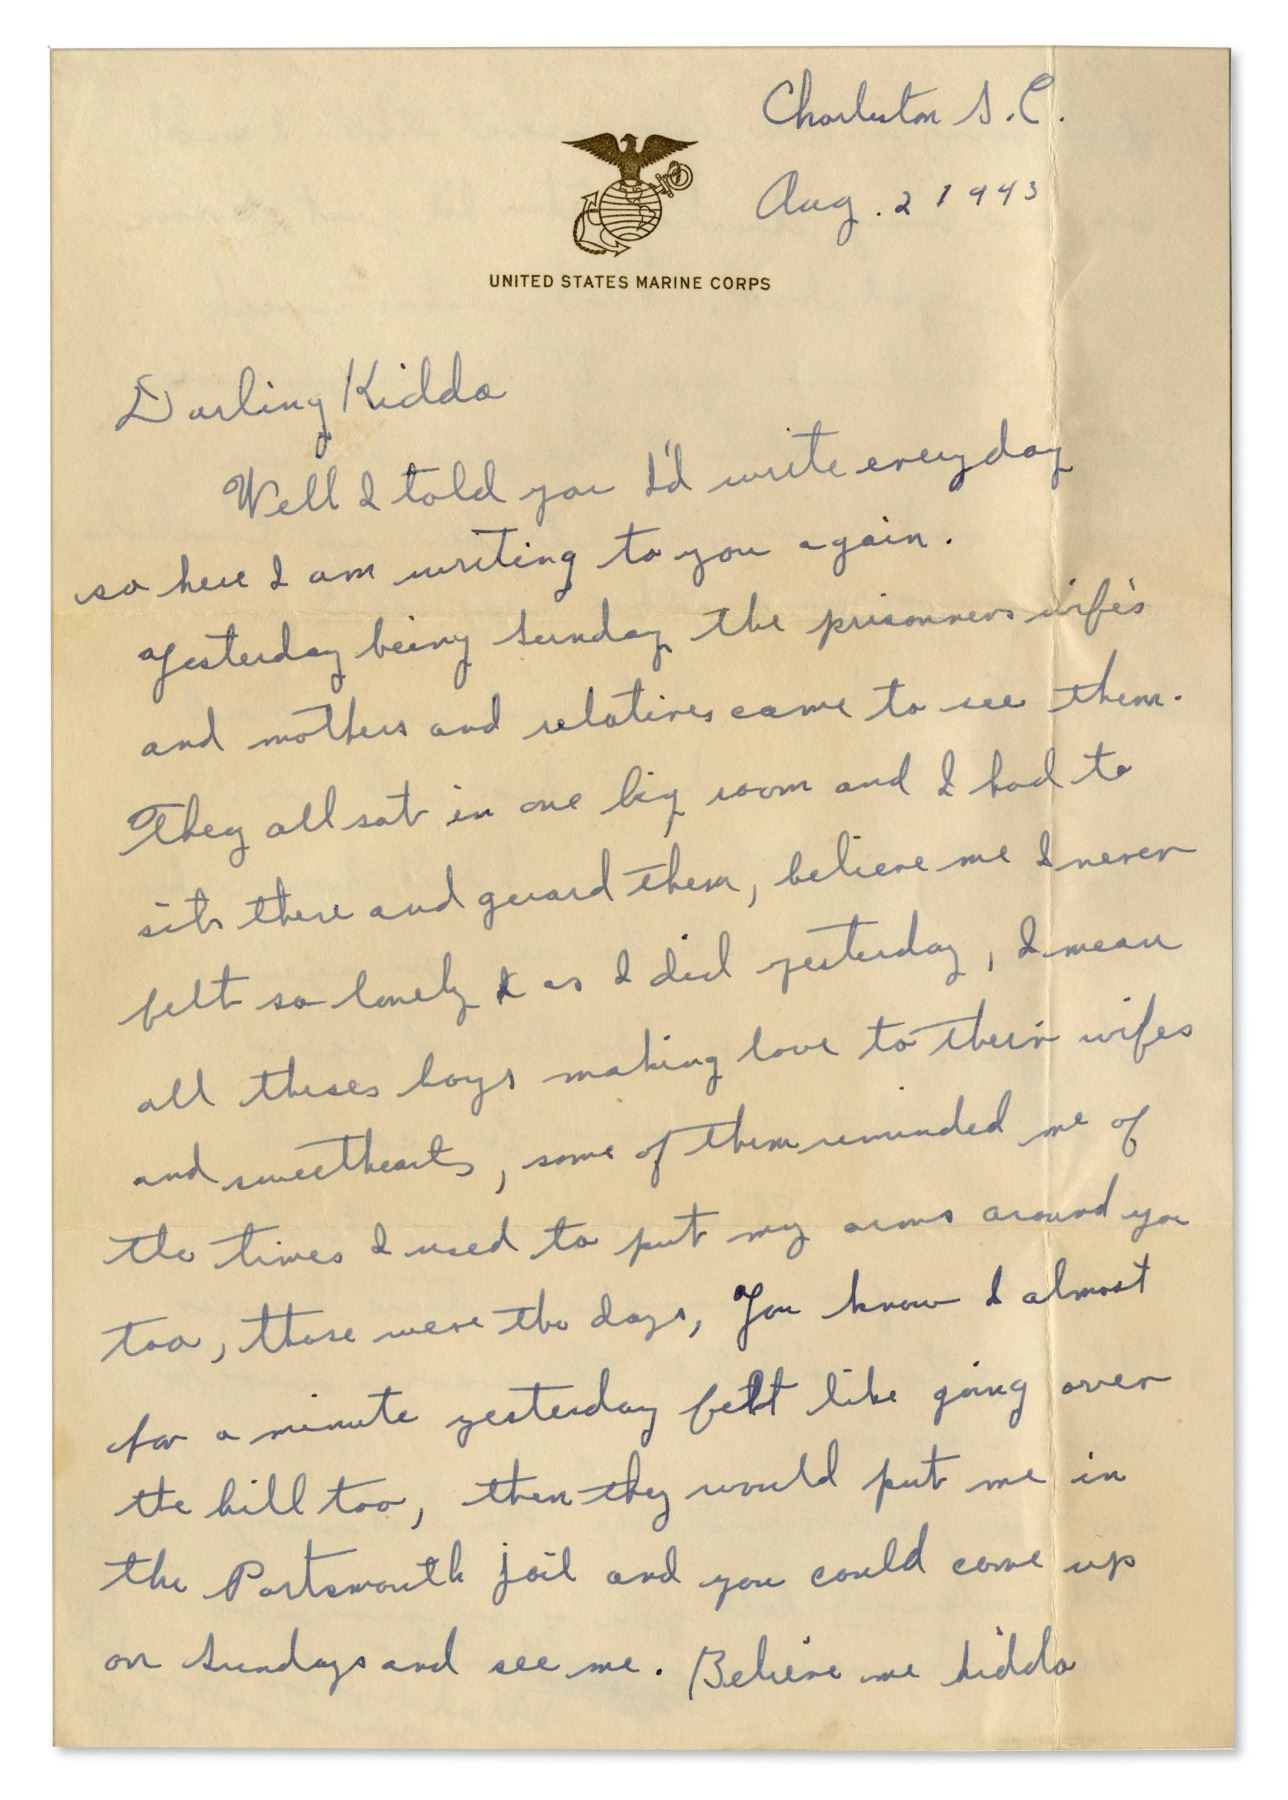 Charleston S.C.
Aug. 2 1943
UNITED STATES MARINE CORPS
Darling Kiddo
Well I told you I'd write everyday
so here I am writing to you again.
Yesterday being Sunday the prisonners wife's
and mothers and relatives came to see them.
They all sat in one big room and I had to
sit there and guard them, believe me I never
felt so lonely as I did yesterday, I mean
all theses boys making love to their wifes
and sweethearts, some of them reminded me of
the times I used to put my arms around you
too, those were the days, You know I almost
for a minute yesterday felt like going over
the hill too, then they would put me in
the Portsmouth jail and you could come up
on Sundays and see me. Believe me kiddo